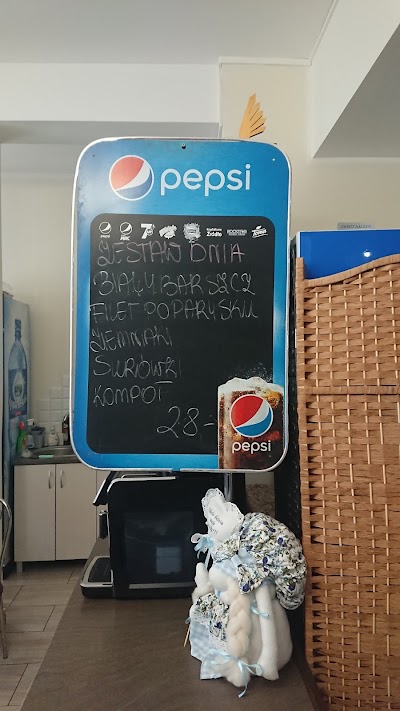 pepsi
ZESTAW DNIA
BIAŁY BARSZCZ
FILET PO PARYSKU
ZIEMNIAKI
SURÓWKI
KOMPOT
28-
pepsi